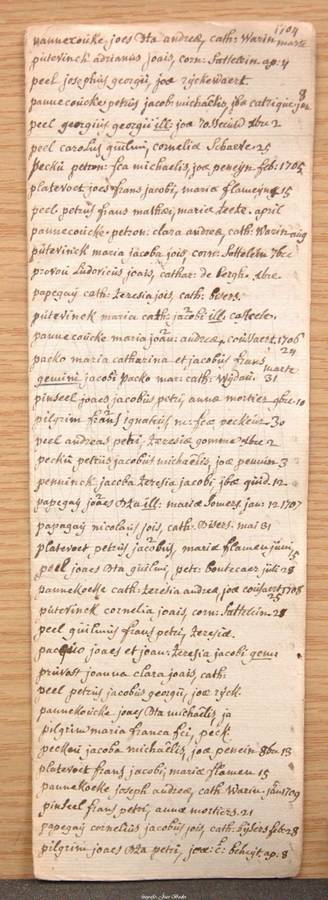 1704
pannecoucke joes Bta andreæ, cath: Warin marte
putevinck adrianus joais, corn: Sattelein. ap: 4
peel josephus georgii, joæ ryckewaert.
pannecoucke petrus jacob michaëlis, jba catrique jan 8
peel georgius georgii ill: joæ xbre 2
peel carolus guilmi, cornelia Schaeve. 25
peckü petron: fca michaelis, joæ peneijn. feb: 1705
platevoet joes frans jacobi, mariæ flameijn 15
peel petrus frans mathæi, mariæ april
pannecoucke petron: clara andreæ, cath: Warin aug
putevinck maria jacoba jois, corn: Sattelein 7bre
provou Ludovicus joais, cathar: de Bergh. xbre.
papegaij cath: Teresia jois, cath:
putevinck maria cath: jacobi ill:
pannecoucke maria joan: andreæ, coussaert. 1706
packo maria catharina et jacobus frans 24
gemini jacobi packo mar: cath: marte 31
pinseel joaes jacobus petri, annæ mortier. 9bre 10
pilgrim frans ignatius m: fcæ peckeur. 30
peel andreas petri, Teresiæ gomme xbre 2
peckü petrus jacobus michaëlis, joæ peneijn 3
penninck jacoba Teresia jacobi, jbæ quid. 12
papegaij joaes Bta ill: mariæ Somers. jan 12 1707
papagaij nicolaus jois, cath: Bisers. mai 31
platevoet petrus jacobus, mariæ flamen junii 15
peel joaes Bta guilmi, petr: boutecaer julii 28
pannekoeke cath: Teresia andreæ, joæ cousaert 1708 25
putevinck cornelia joais, corn: Sattelein. 28
peel guilmus frans petri, Teresiæ.
packo joaes et joan: Teresia jacobi gem:
pruvost joanna clara joais, cath:
peel petrus jacobus georgii, joæ ryck:
pannekoucke joaes Bta michaëlis, ja
pilgrim maria franca fci, peck
peckou jacoba michaëlis, joæ penein 8bre 13
platevoet frans jacobi, mariæ flamen 15
pannekoeke joseph andreæ, cath: Warin. jan 1709
pinseel frans petri, annæ mortiers. 21
papegaij cornelius jacobus jois, cath: bijsers feb: 28
pilgrim joaes Bta petri, joæ: C: behaijt. ap: 8